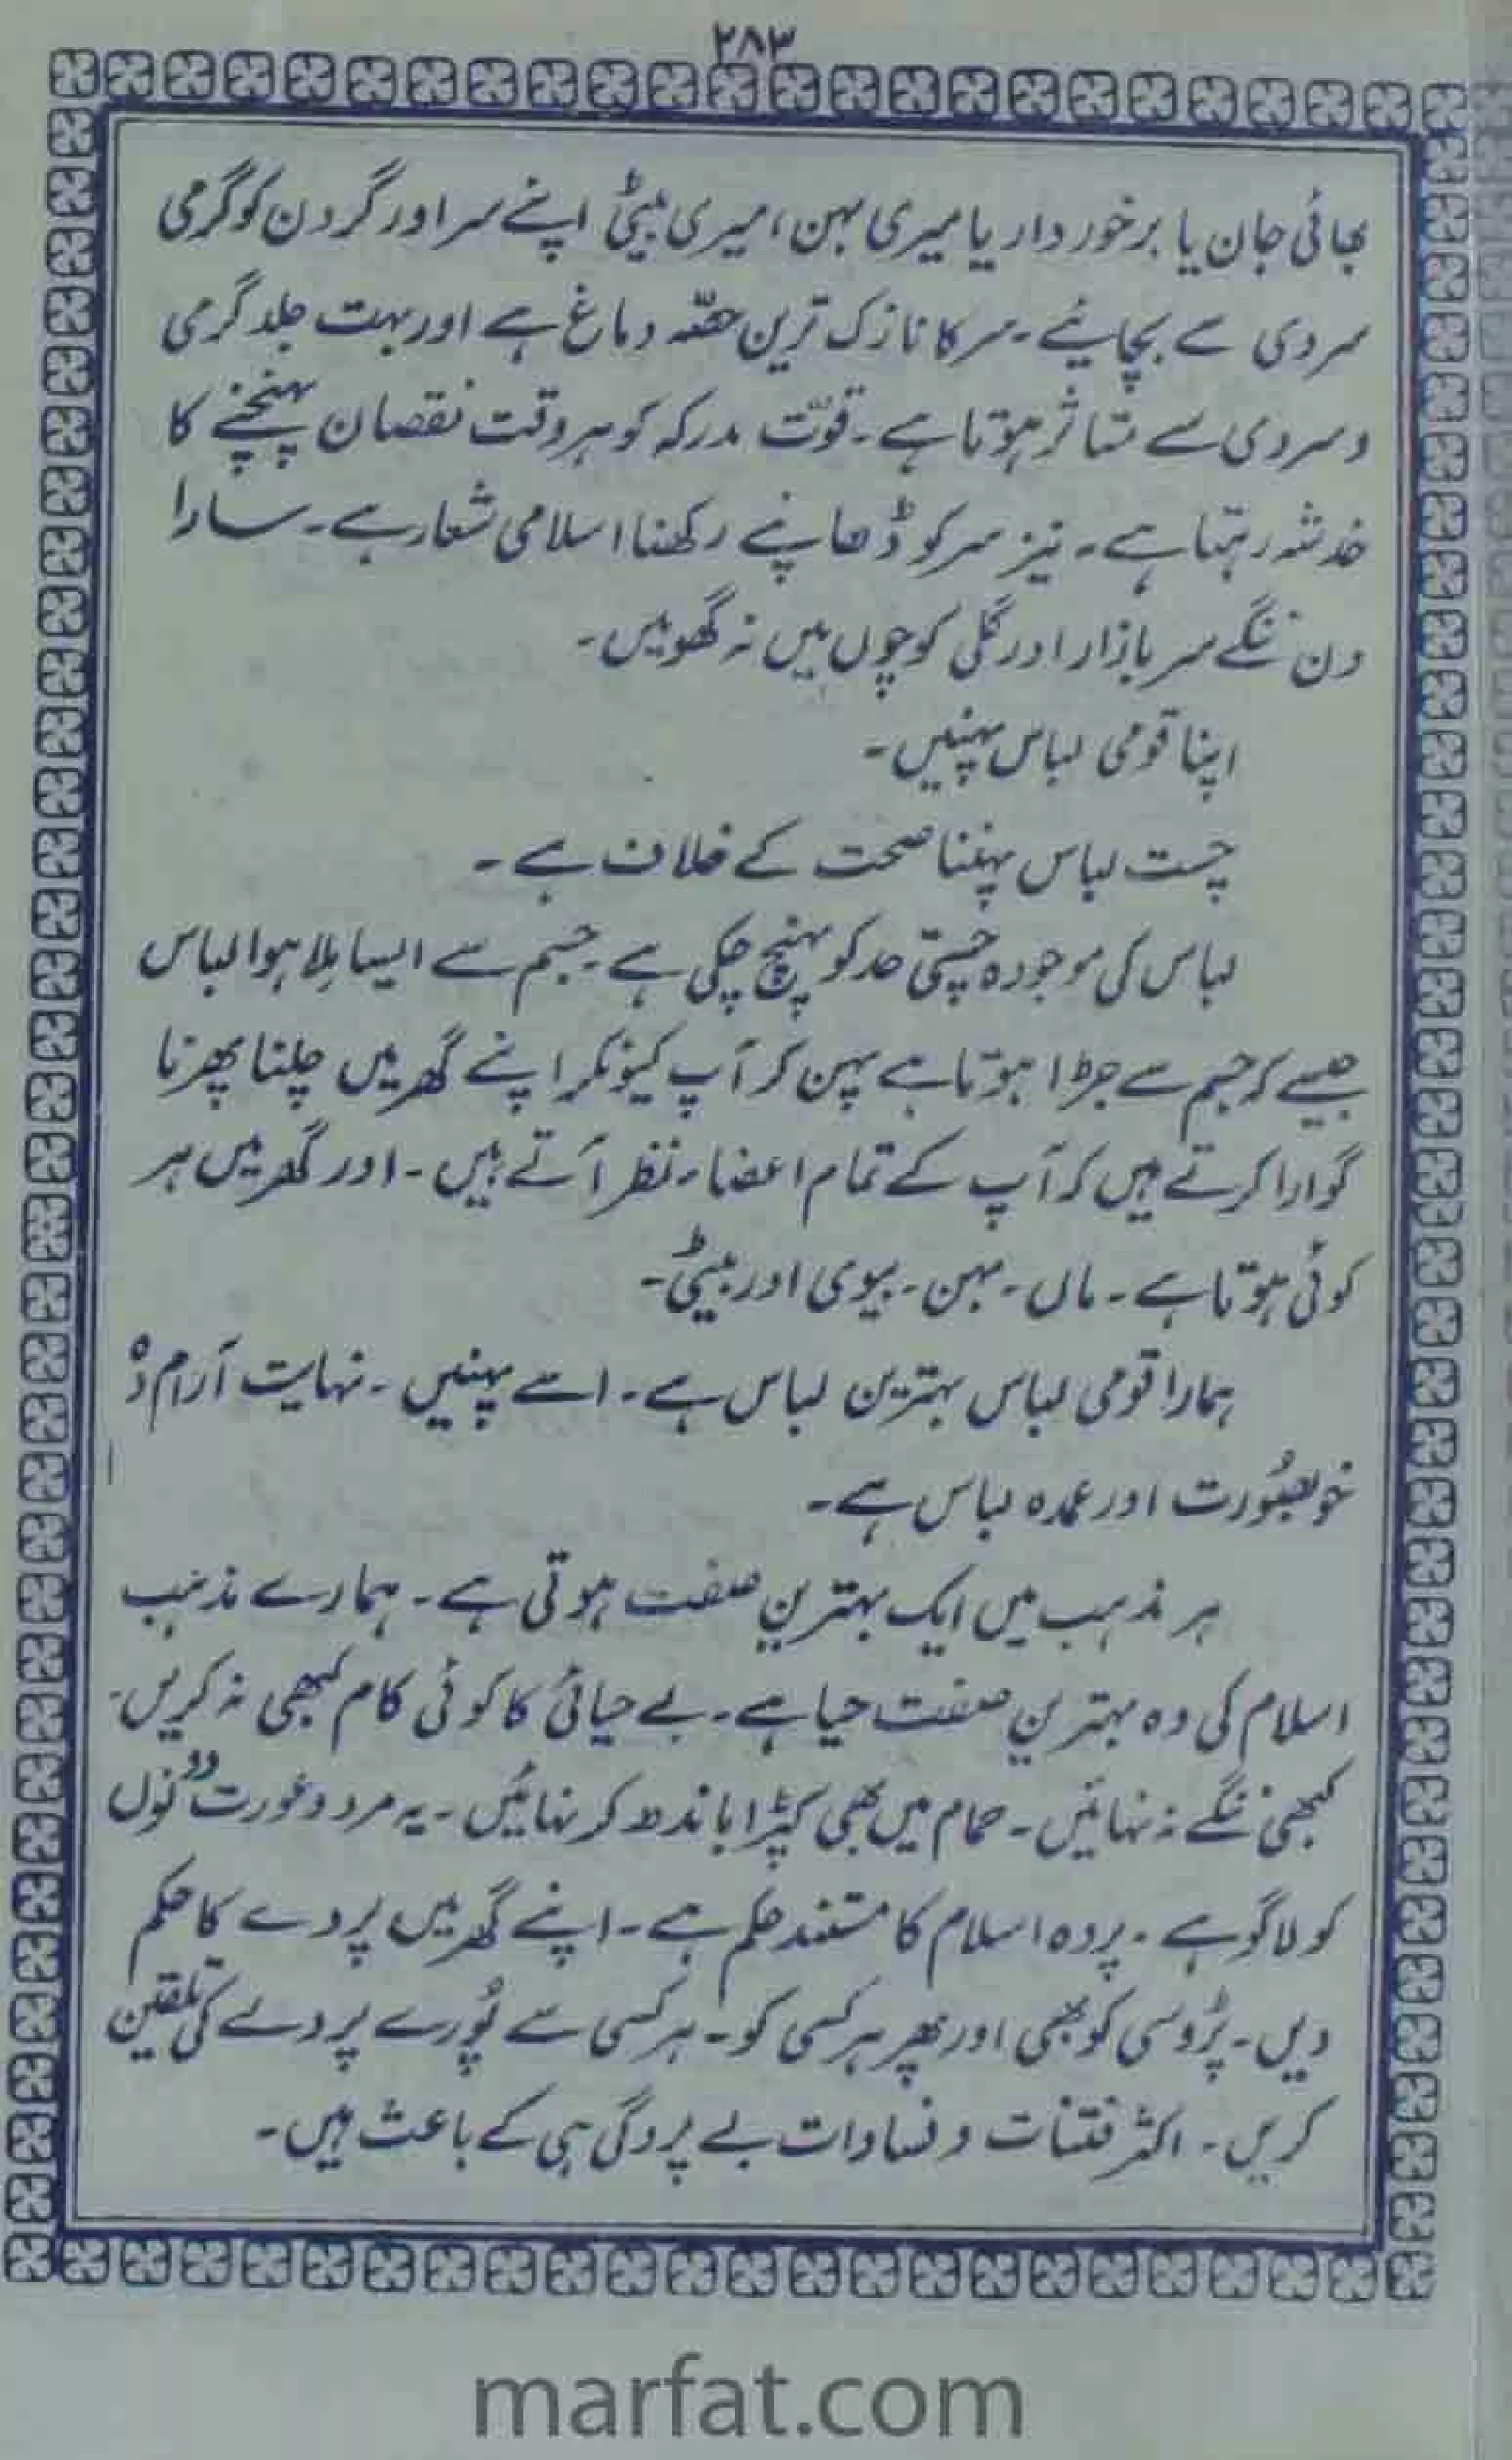 ۲۸۳
بھائی جان یا برخوردار یا میری بہن، میری بیٹی اپنے سر اور گردن کو گرمی
سردی سے بچائیے۔ سر کا نازک ترین حصّہ دماغ ہے اور بہت جلد گرمی
و سردی سے متاثر ہوتا ہے۔ قوّت مدرکہ کو ہر وقت نقصان پہنچنے کا
خدشہ رہتا ہے۔ نیز سر کو ڈھانپے رکھنا اسلامی شعار ہے۔ سارا
دن ننگے سر بازار اور گلی کوچوں میں نہ گھومیں۔
اپنا قومی لباس پہنیں۔
چست لباس پہننا صحت کے خلاف ہے۔
لباس کی موجودہ چستی حد کو پہنچ چکی ہے۔ جسم سے ایسا مِلا ہوا لباس
جیسے کہ جسم سے جڑا ہوتا ہے پہن کر آپ کیونکر اپنے گھر میں چلنا پھرنا
گوارا کرتے ہیں کہ آپ کے تمام اعضاء نظر آتے ہیں۔ اور گھر میں ہر
کوئی ہوتا ہے۔ ماں۔ بہن۔ بیوی اور بیٹی۔
ہمارا قومی لباس بہترین لباس ہے۔ اسے پہنیں۔ نہایت آرام دہ
خوبصُورت اور عمدہ لباس ہے۔
ہر مذہب میں ایک بہترین صفت ہوتی ہے۔ ہمارے مذہب
اسلام کی وہ بہترین صفت حیا ہے۔ بے حیائی کا کوئی کام کبھی نہ کریں۔
کبھی ننگے نہ نہائیں۔ حمام میں بھی کپڑا باندھ کر نہائیں۔ یہ مرد و عورت دونوں
کو لاگو ہے۔ پردہ اسلام کا مستند حکم ہے۔ اپنے گھر میں پردے کا حکم
دیں۔ پڑوسی کو بھی اور پھر ہر کسی کو۔ ہر کسی سے پُورے پردے کی تلقین
کریں۔ اکثر فتنات و فسادات بے پردگی ہی کے باعث ہیں۔
marfat.com